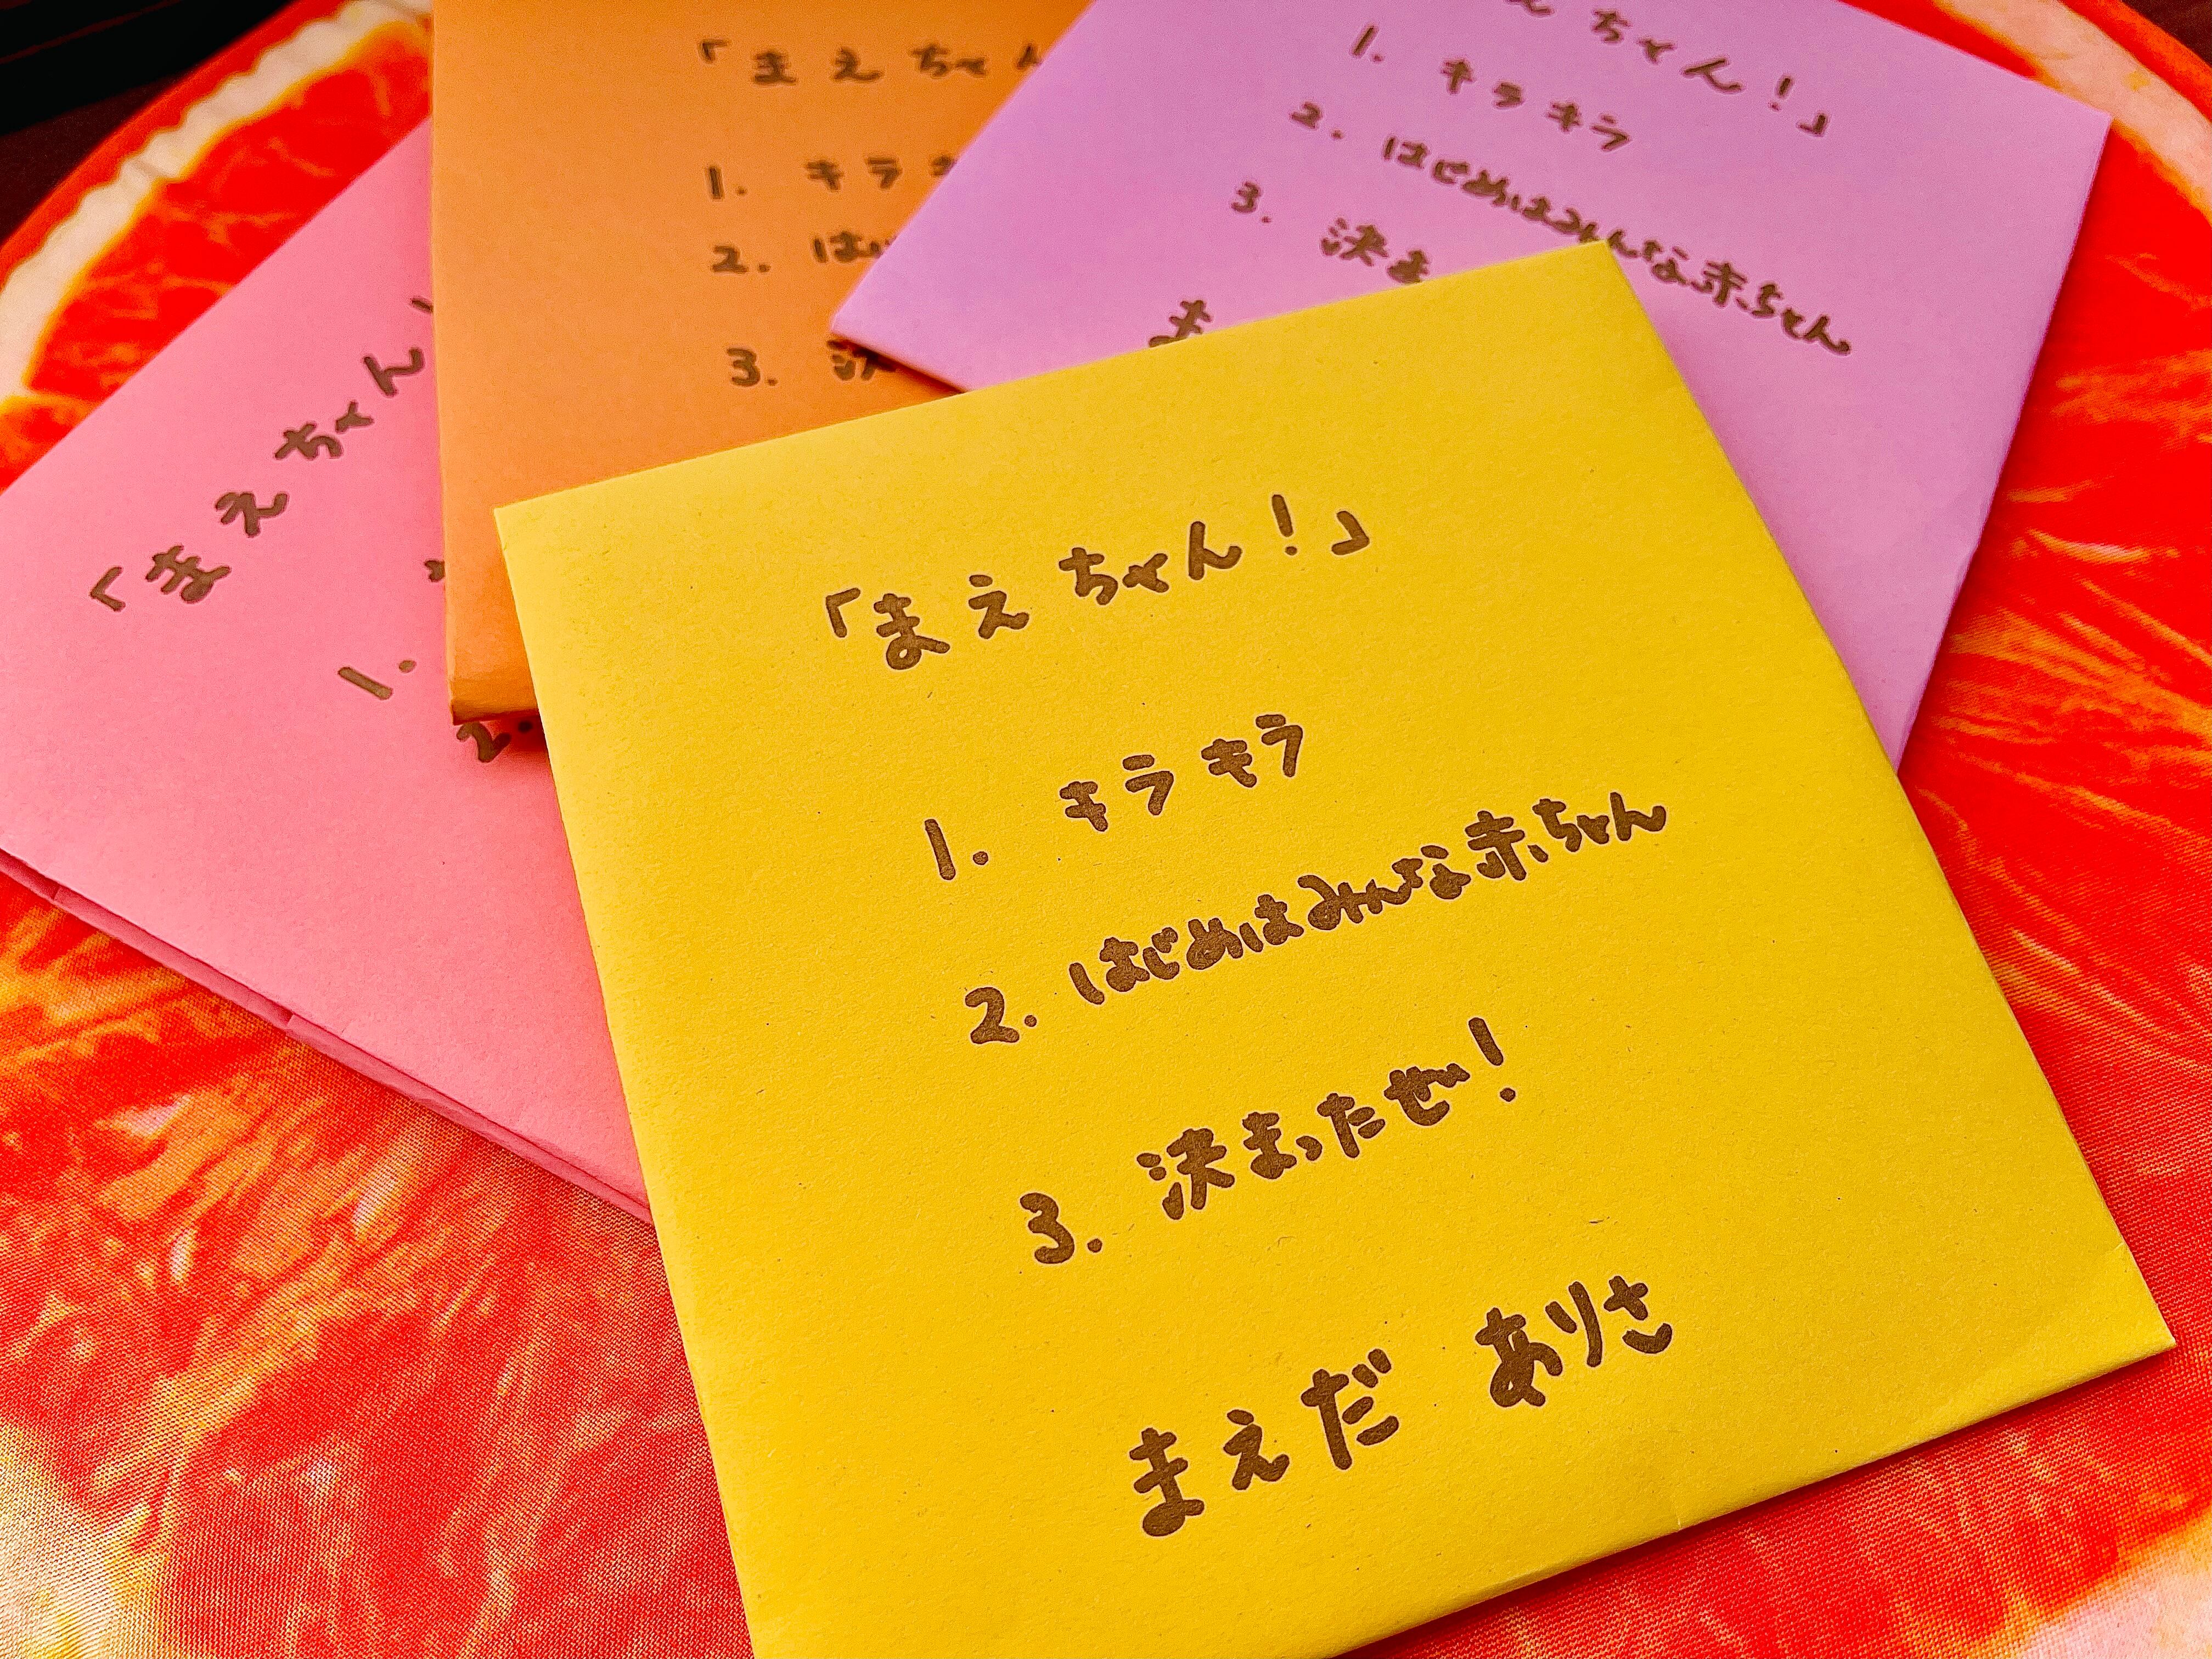 「まえちゃん
1.
2.
「まえちゃん
1. キラ
2. はじ
3. 決
えちゃん！」
1. キラキラ
2. はじめはみんな赤ちゃん
3. 決ま
ま
「まえちゃん！」
1. キラキラ
2. はじめはみんな赤ちゃん
3. 決まったぜ！
まえだ ありさ